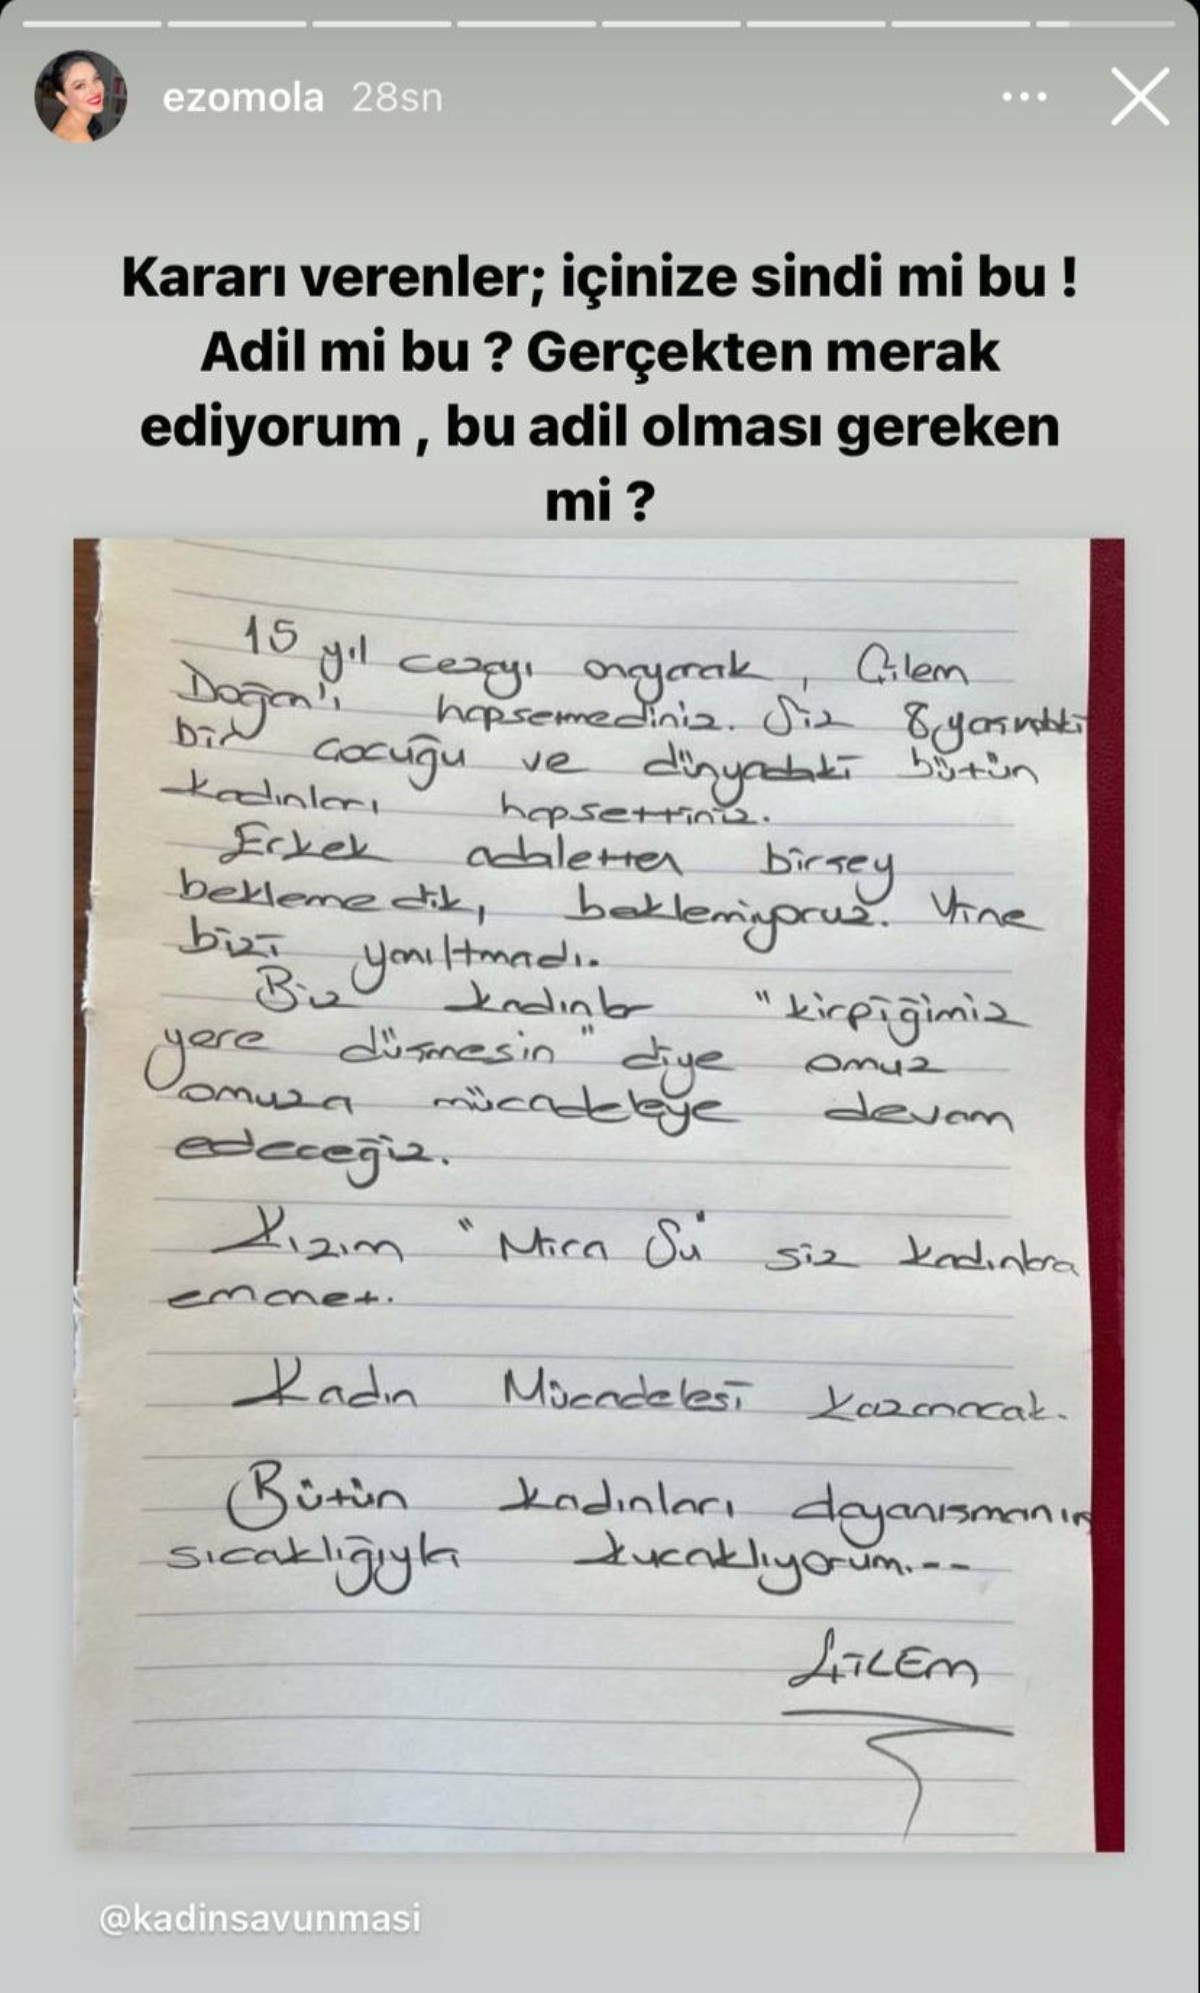 ezomola 28sn
Kararı verenler; içinize sindi mi bu !
Adil mi bu ? Gerçekten merak
ediyorum , bu adil olması gereken
mi ?
15 yıl cezayı onayarak, Çilem
Doğan'ı hapsemediniz. Siz 8 yaşındaki
bir çocuğu ve dünyadaki bütün
kadınları hapsettiniz.
Erkek adaletten birşey
beklemedik, beklemiyoruz. Yine
bizi yanıltmadı.
Biz kadınlar "kirpiğimiz
yere düşmesin" diye omuz
omuza mücadeleye devam
edeceğiz.
Kızım "Mira Su" siz kadınlara
emanet.
Kadın Mücadelesi kazanacak.
Bütün kadınları dayanışmanın
sıcaklığıyla kucaklıyorum.--
ÇİLEM
@kadinsavunmasi